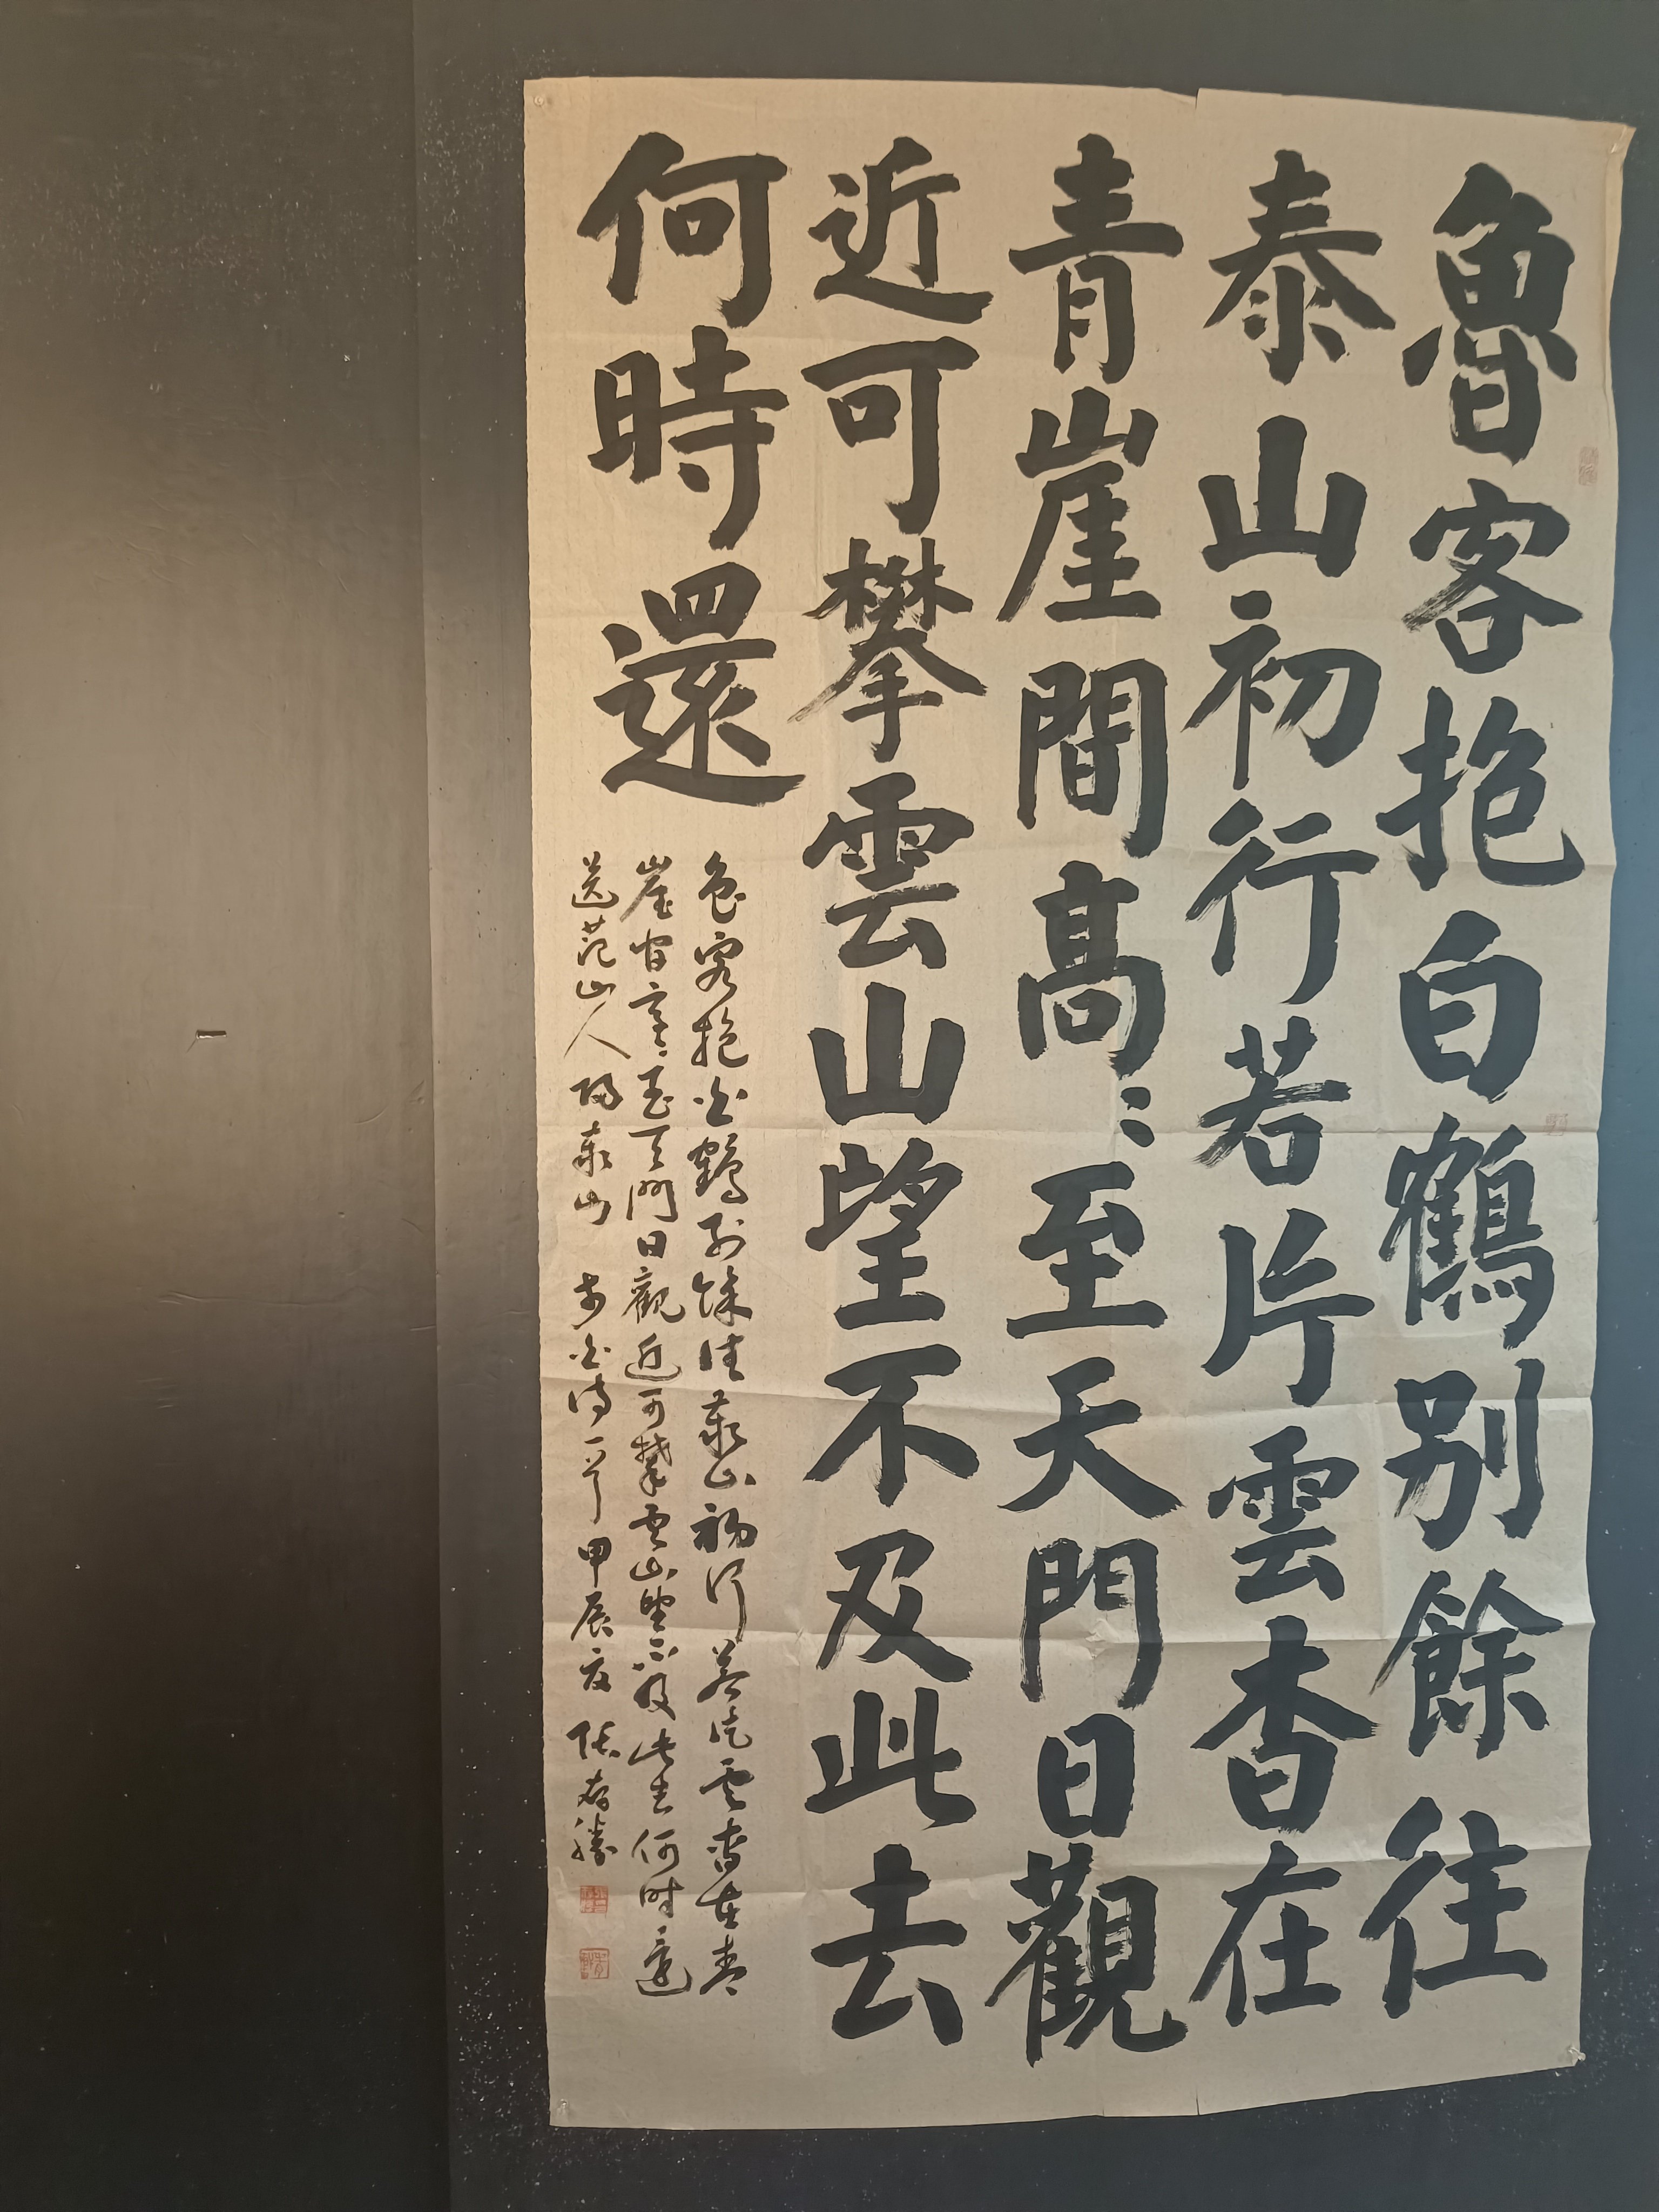 魯客抱白鶴别餘往
泰山初行若片雲杳在
青崖間高〻至天門日觀
近可攀雲山望不及此去
何時還
魯客抱白鶴別餘往泰山初行若片雲杳在青
崖間高〻至天門日觀近可攀雲山望不及此去何時還
送范山人歸泰山 李白詩一首 甲辰夏